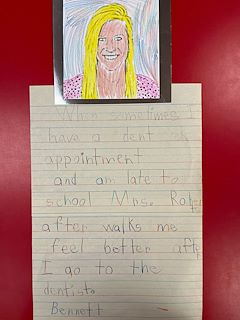 When sometimes I
have a dent
appointment
and am late to
school Mrs. Roter
after walks me
feel better after
I go to the
dentist.
Bennett